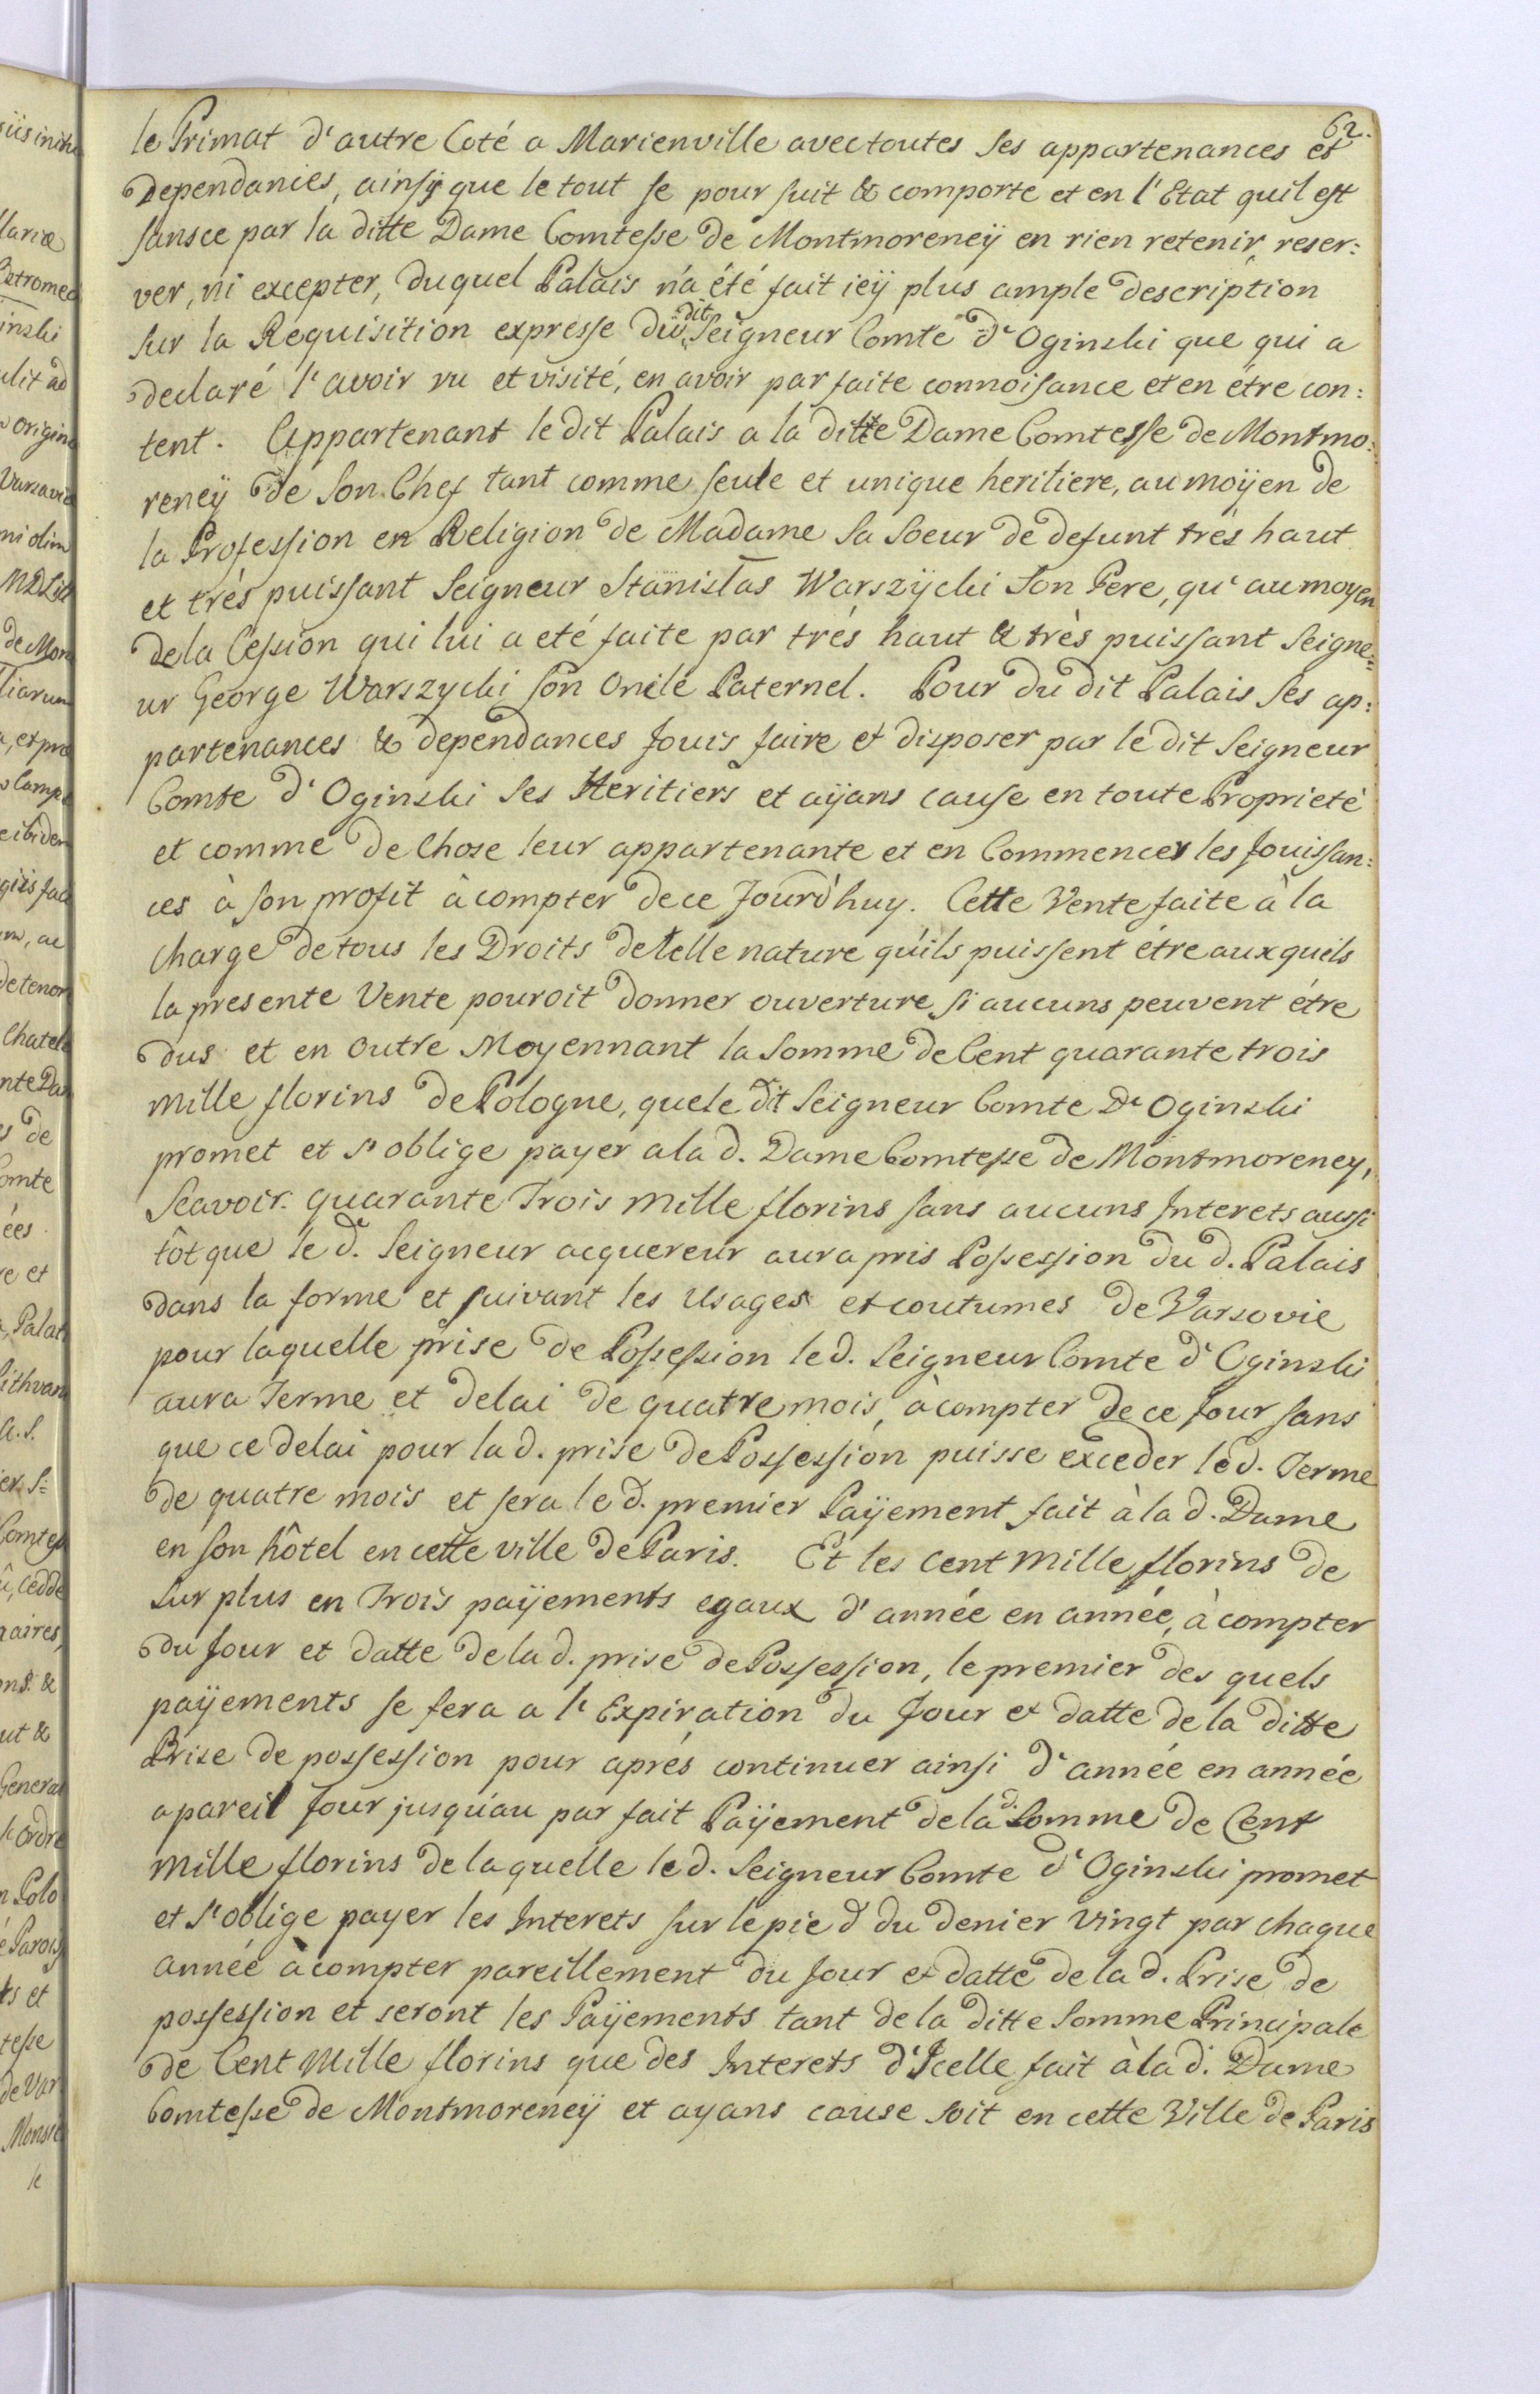 62.
le Primat d'autre Coté a Marienville avec toutes ses appartenances et
Dependances, ainsy que le tout se pour suit & comporte et en l'Etat quil est
sansce par la ditte Dame Comtesse de Montmoreneÿ en rien retenir, reser:
ver, ni excepter, duquel Palais n'a été fait iëÿ plus ample description
sur la Requisition expresse du dit Seigneur Comte d'Oginski que qui a
declaré l'avoir vu et visité, en avoir par faite connoisance et en être con:
tent. Appartenant le dit Palais a la ditte Dame Comtesse de Montmo:
reneÿ de Son Chef tant comme seule et unique heritiere, au moÿen de
la Profession en Religion de Madame Sa Soeur de defunt très haut
et très puissant Seigneur Stanislas Warszÿcki Son Pere, qu'au moyen
de la Cession qui lui a eté faite par très haut & très puissant Seigne:
ur George Warszycki son Oncle Paternel. Pour du dit Palais ses ap:
partenances & dependances Jouis faire et disposer par le dit Seigneur
Comte d'Oginski Ses Heritiers et aÿans cause en toute Proprieté
et comme de Chose leur appartenante et en Commencer les Jouissan:
ces à son profit à compter de ce Jourd'huy. Cette Vente faite à la
charge de tous les Droits de telle nature qu'ils puissent être aux quels
la presente Vente pouroit donner ouverture si aucuns peuvent être
dus et en outre Moyennant la Somme de Cent quarante trois
mille florins de Pologne, que le dit Seigneur Comte D'Oginski
promet et s'oblige payer a la d. Dame Comtesse de Montmoreney,
Seavoir. quarante Trois mille florins sans aucuns Interets aussi
tôt que le d. Seigneur acquereur aura pris Possession du d. Palais
dans la forme et suivant les Usages et coutumes de Varsovie
pour laquelle prise de Possession le d. Seigneur Comte d'Oginski
aura Terme et delai de quatre mois, à compter de ce Jour sans
que ce delai pour la d. prise de Possession puisse exceder le d. Terme
de quatre mois et sera le d. premier Paÿement fait à la d. Dame
en son hôtel en cette ville de Paris. Et les Cent mille florins de
Sur plus en Trois paÿements egaux d'année en année, à compter
du Jour et datte de la d. prise de Possession, le premier des quels
paÿements se fera a l'Expiration du Jour et datte de la ditte
Prise de possession pour aprés continuer ainsi d'année en année
a pareil Jour jusqu'au par fait Paÿement de la d. Somme de Cent
mille florins de laquelle le d. Seigneur Comte d'Oginski promet
et s'oblige payer les Interets sur le pie d du denier vingt par chaque
année à compter pareillement du Jour et datte de la d. Prise de
possession et seront les Paÿements tant de la ditte Somme Principale
de Cent Mille florins que des Interets d'Icelle fait à la d. Dame
Comtesse de Montmoreneÿ et ayans cause soit en cette Ville de Paris